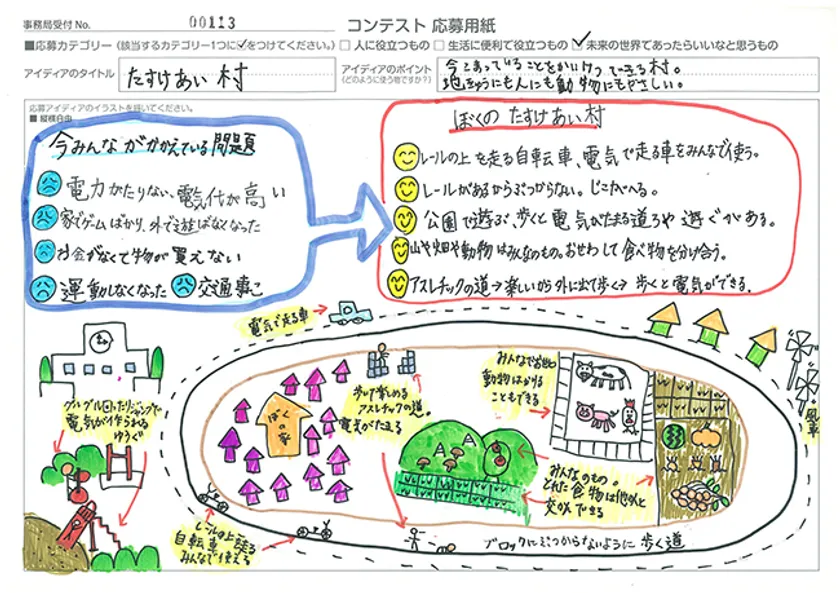 事務局受付 No. 00113
コンテスト 応募用紙
■応募カテゴリー(該当するカテゴリー1つに✓をつけてください。) □ 人に役立つもの □ 生活に便利で役立つもの ☑ 未来の世界であったらいいなと思うもの
アイディアのタイトル
たすけあい 村
アイディアのポイント
(どのように使う物ですか?)
今こまっていることをかいけつできる村。
地きゅうにも人にも動物にもやさしい。
応募アイディアのイラストを描いてください。
■ 縦横自由
今みんながかかえている問題
電力がたりない、電気代が高い
家でゲームばかり、外で遊ばなくなった
お金がなくて物が買えない
運動しなくなった
交通事こ
ぼくの たすけあい村
レールの上を走る自転車、電気で走る車をみんなで使う。
レールがあるからぶつからない。じこがへる。
公園で遊ぶ、歩くと電気がたまる道ろや遊ぐがある。
山や畑や動物はみんなのもの。おせわして食べ物を分け合う。
アスレチックの道→楽しいから外に出て歩く→歩くと電気ができる.
電気で走る車
グルグル回ったりジャンプで
電気が作られる
ゆうぐ
ぼくの家
歩いて楽しめる
アスレチックの道。
電気がたまる
みんなでお世わ
動物はかりる
こともできる
風車
みんなのもの。
とれた食べ物は他と
交かんできる
レールの上を走る
自転車
みんなで使える
ブロックにぶつからないように 歩く道